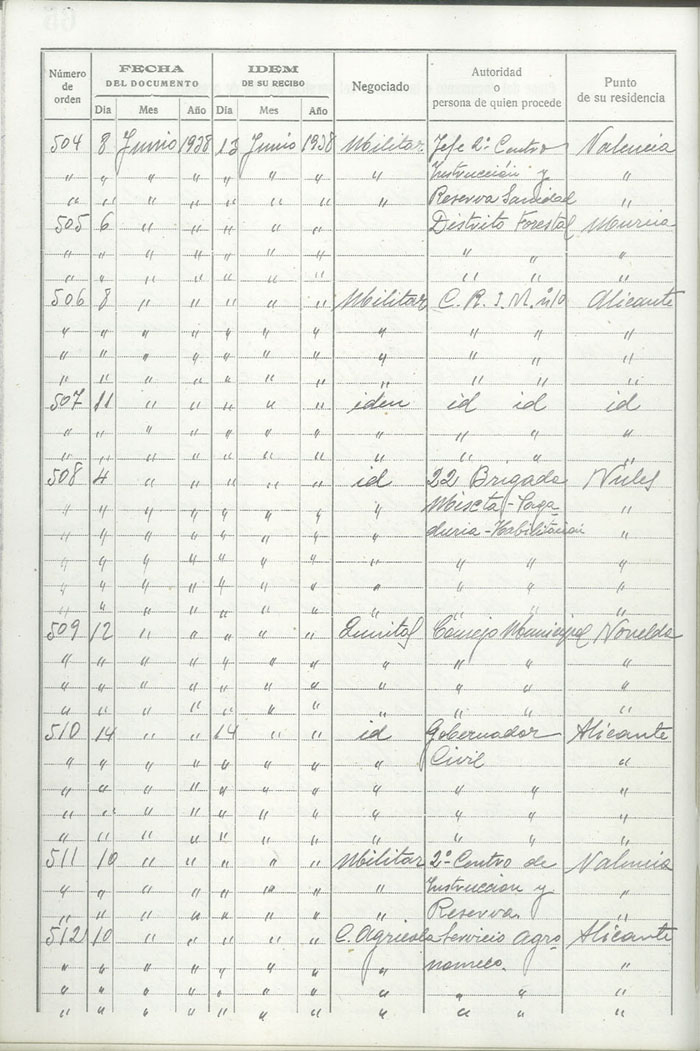 Número de orden | FECHA DEL DOCUMENTO | IDEM DE SU RECIBO | Negociado | Autoridad o persona de quien procede | Punto de su residencia
Dia | Mes | Año | Dia | Mes | Año
504 8 Junio 1938 13 Junio 1938 Militar. Jefe 2º Centro Valencia
" " " " " " " " Instrucción y "
" " " " " " " " Reserva Sanidad "
505 6 " " " " " Distrito Forestal Murcia
" " " " " " " " " "
" " " " " " " " " "
506 8 " " " " " Militar C. R. I. M. nº 10 Alicante
" " " " " " " " " " "
" " " " " " " " " " "
" " " " " " " " " " "
507 11 " " " " " iden id id id
" " " " " " " " " " "
" " " " " " " " " " "
508 4 " " " " " id 22 Brigada Nules
" " " " " " " " Mixta-Paga- "
" " " " " " " " duria-Habilitación "
" " " " " " " " " " "
" " " " " " " " " " "
" " " " " " " " " " "
509 12 " " " " " Quintas Consejo Municipal Novelda
" " " " " " " " " " "
" " " " " " " " " " "
" " " " " " " " " " "
510 14 " " 14 " " id Gobernador Alicante
" " " " " " " " Civil "
" " " " " " " " " " "
" " " " " " " " " " "
" " " " " " " " " " "
511 10 " " " " " Militar 2º Centro de Valencia
" " " " " " " " Instrucción y "
" " " " " " " " Reserva. "
512 10 " " " " " C. Agricola Servicio Agro- Alicante
" " " " " " " " nomico. "
" " " " " " " " " " "
" " " " " " " " " " "